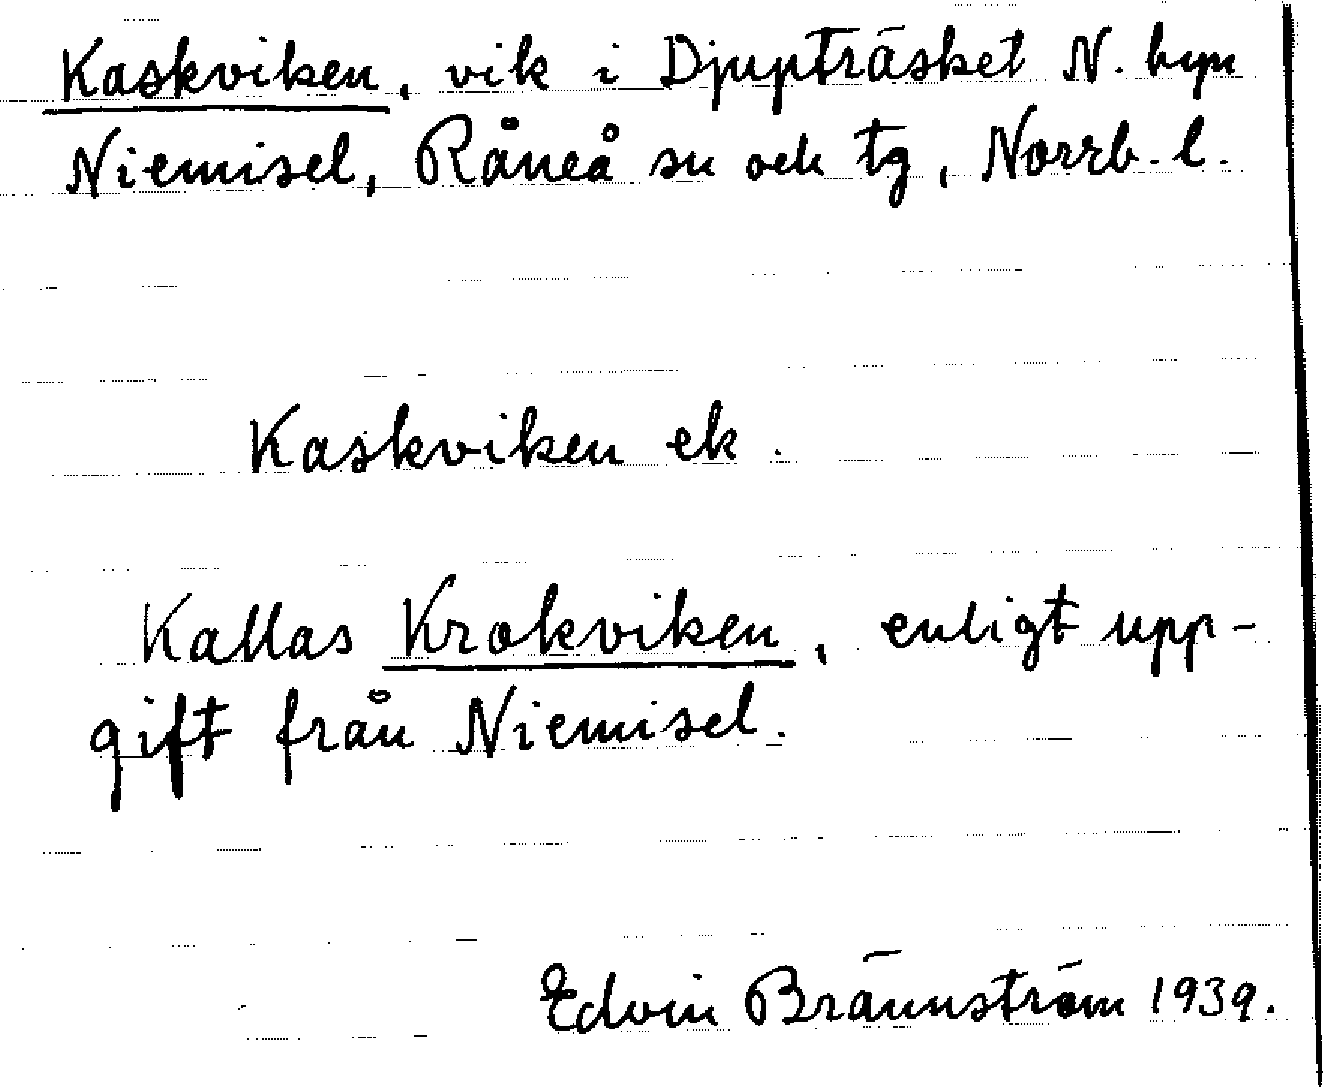 Kaskviken, vik i Djupträsket N. byn
Niemisel, Råneå sn och tg, Norrb. l.
Kaskviken ek.
Kallas Krokviken, enligt upp-
gift från Niemisel.
Edvin Brännström 1939.